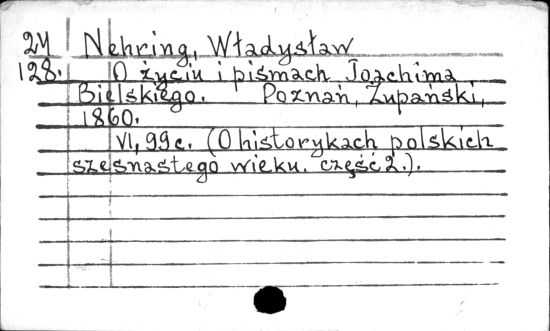 24 Nehring, Władysław
128. O życiu i pismach Joachima
Bielskiego. Poznań, Żupański,
1860.
VI, 99 c. (O historykach polskich
szesnastego wieku. część 2.).